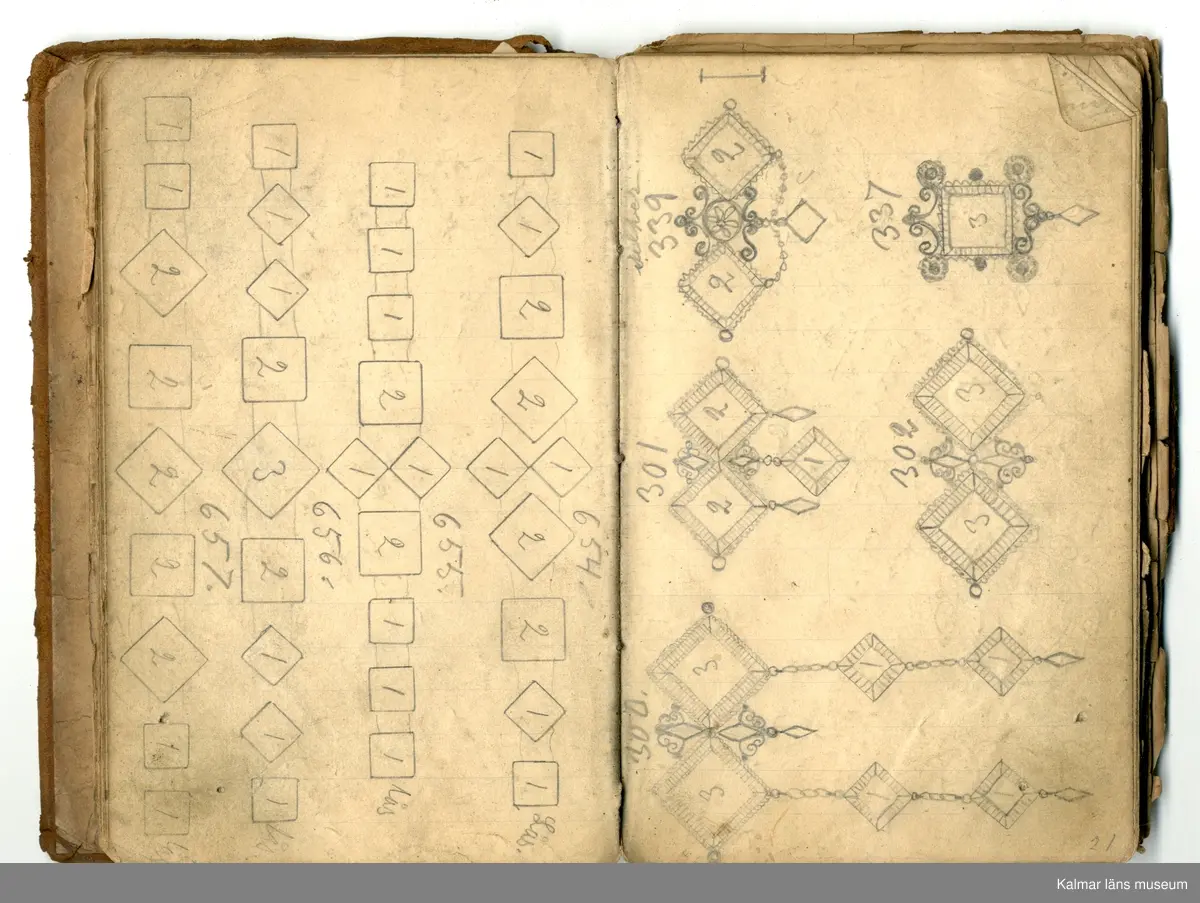 1 1 2 2 2 2 2 1 1
657.
1 1 1 2 3 2 1 1 1
656.
1 1 1 2 1 1 2 1 1 1 Lås
655.
1 1 2 2 1 1 2 2 1 1 Lås.
654.
339
2 2
337
3
301
2 2 1
302
3 3
300.
3 1 1
3 1 1
21
Kalmar läns museum